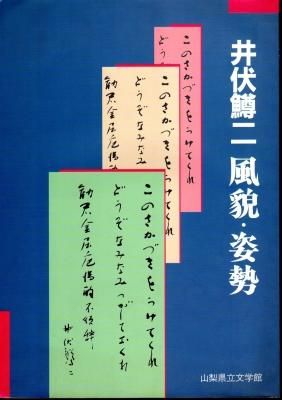 井伏鱒二 風貌・姿勢
このさかづきをうけてくれ
どうぞ
このさかづきをうけてくれ
どうぞなみなみ
勧君金屈巵
このさかづきをうけてくれ
どうぞなみなみつがしておくれ
勧君金屈巵満酌不須辞
井伏鱒二
山梨県立文学館